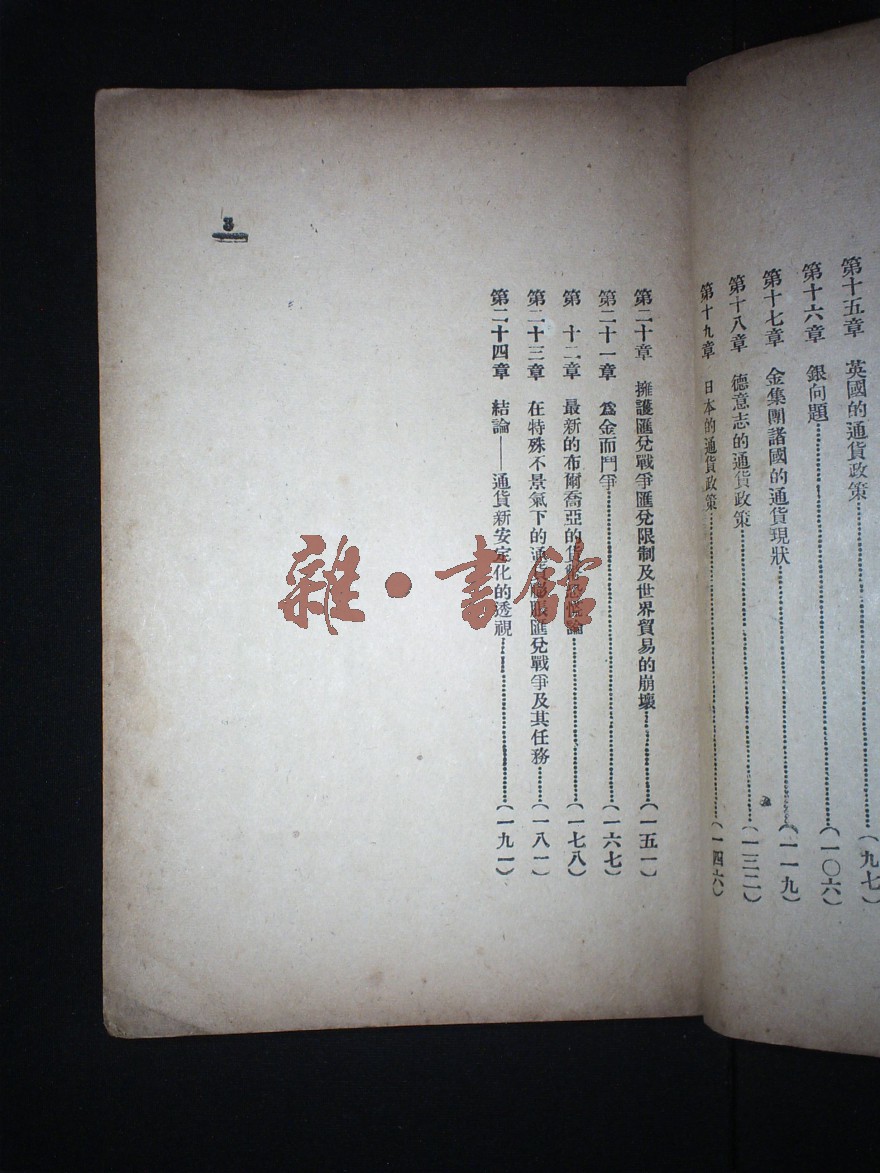 第十五章　英國的通貨政策……(九七)
第十六章　銀向題……(一〇六)
第十七章　金集團諸國的通貨現狀……(一一九)
第十八章　德意志的通貨政策……(一三二)
第十九章　日本的通貨政策……(一四六)
第二十章　擁護匯兌戰爭匯兌限制及世界貿易的崩壞……(一五一)
第二十一章　爲金而鬥爭……(一六七)
第　十二章　最新的布爾喬亞的貨幣　論……(一七八)
第二十三章　在特殊不景氣下的通貨膨脹匯兌戰爭及其任務……(一八一)
第二十四章　結論——通貨新安定化的透視……(一九一)
3
雜·書館